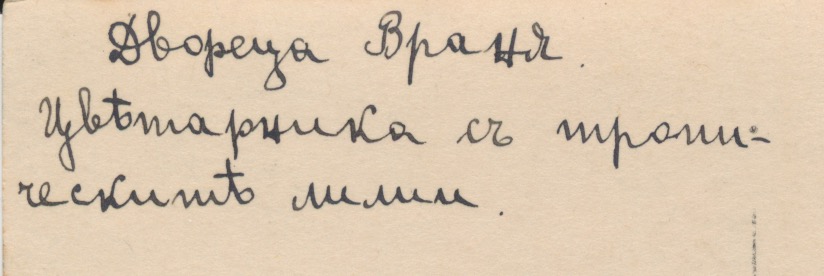 Двореца Враня.
Цвѣтарника съ тропи-
ческитѣ лилии.